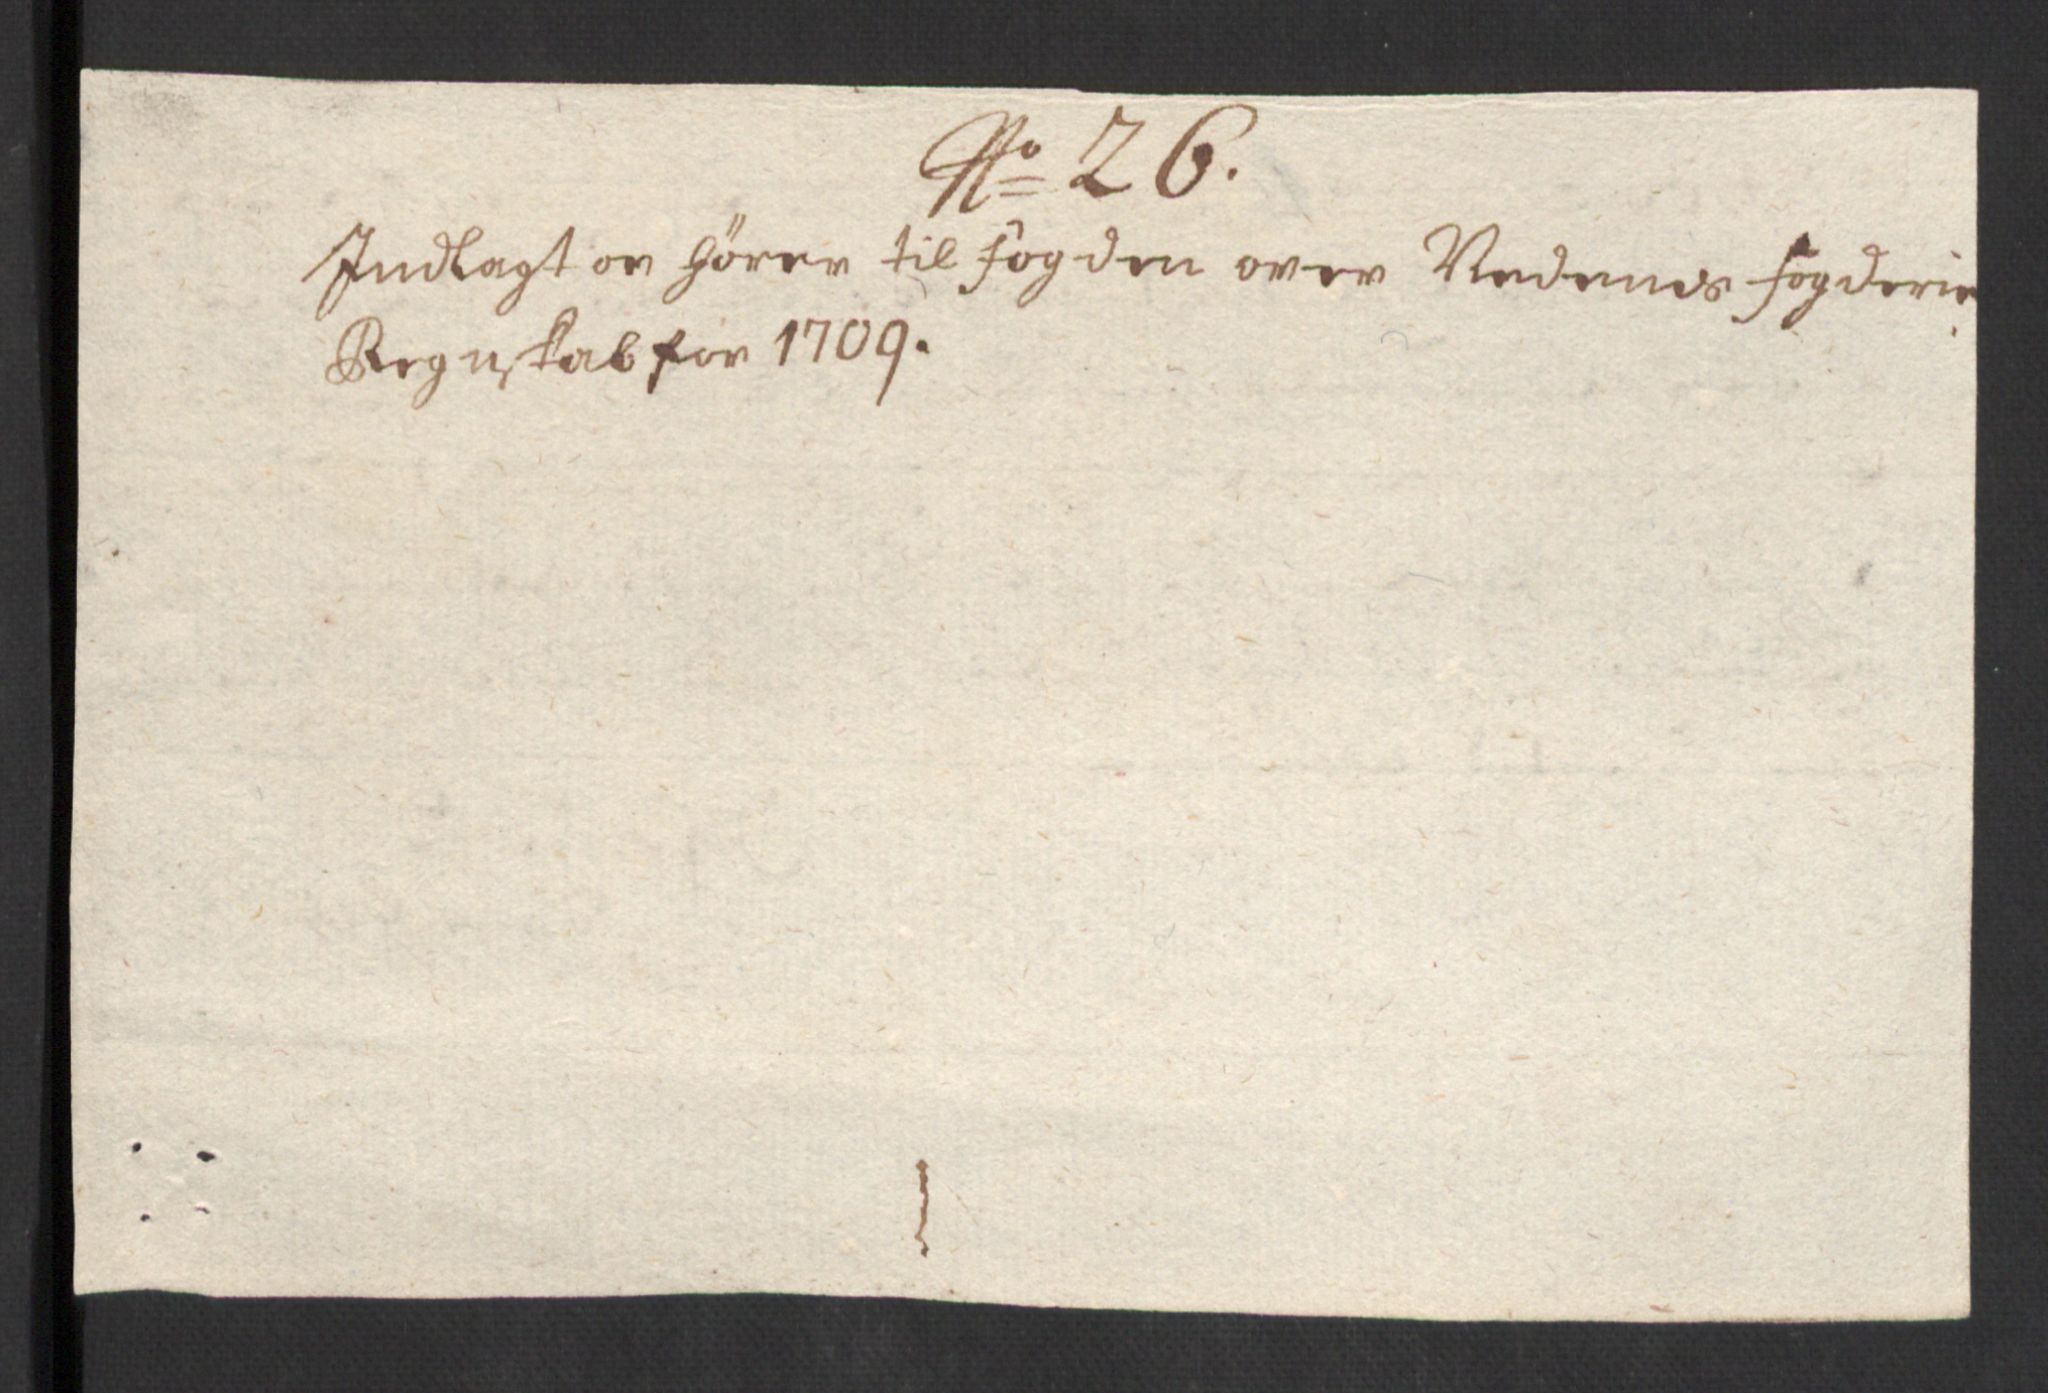 No 26.
Indlagt og hörer til fogden over Nedenes fogderie
Regnskab for 1709.